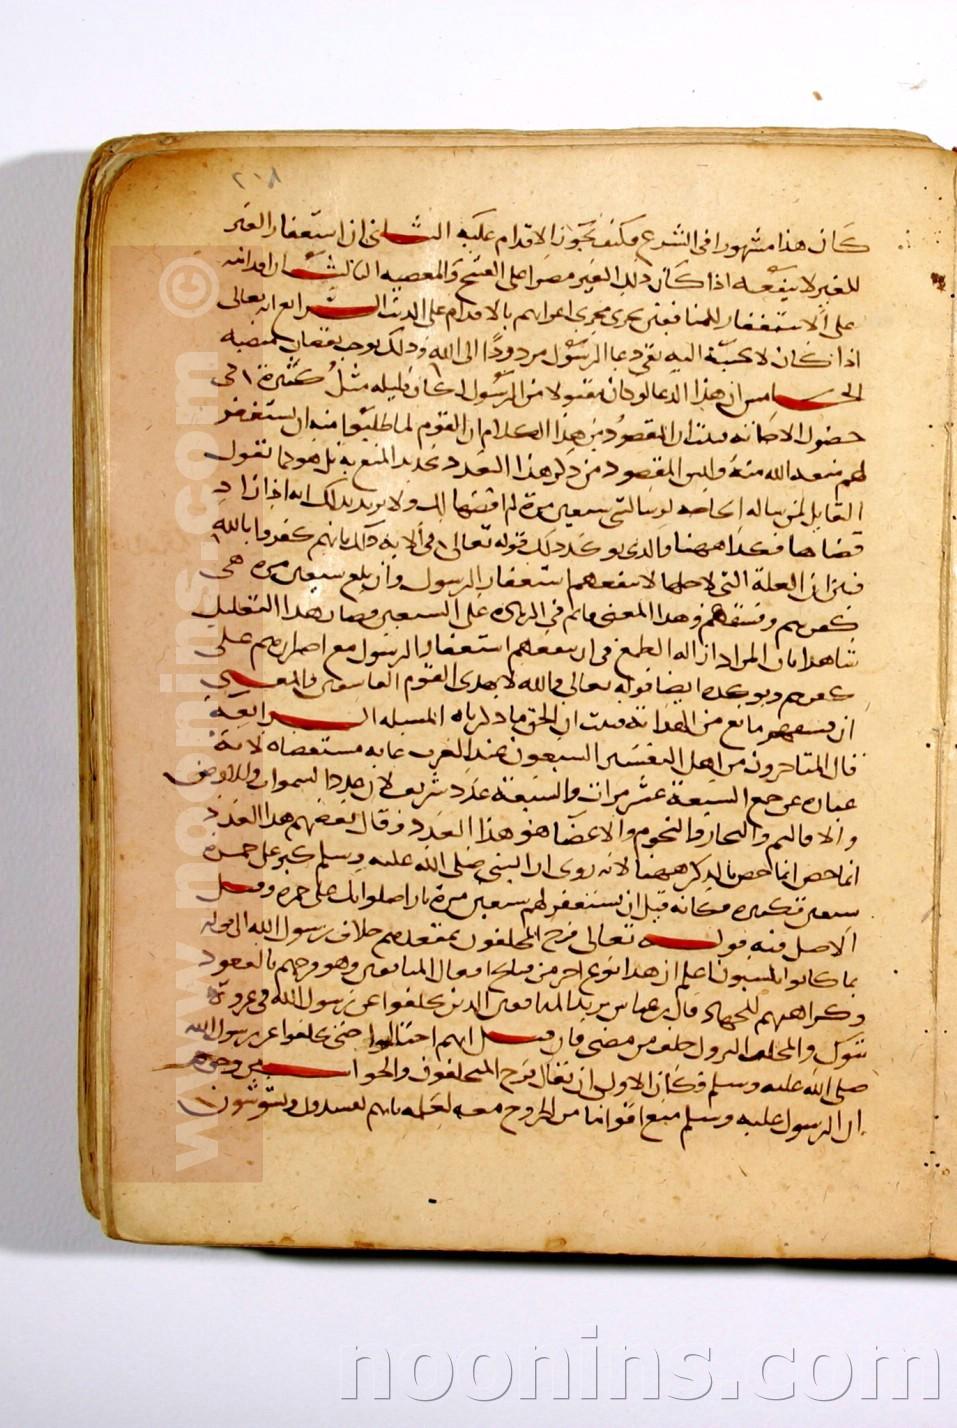 ٢٠٨
كان هذا مشهورا في الشرع فكيف يجوز الاقدام عليه الثاني ان استغفار الغير
للغير لا ينفعه اذا كان ذلك الغير مصرا على القبح والمعصيه الثالث ان اقدامه
على الاستغفار للمنافقين يجري مجرى اغرائهم بالاقدام على الذنب الرابع انه تعالى
اذا كان لا يجيبه اليه بقي دعا الرسول مردودا الى الله وذلك يوجب نقصان منصبه
الخامس ان هذا الدعا لو كان مقبولا من الرسول لكان قليله مثل كثيره في
حصول الاجابة فثبت ان المقصود من هذا الكلام ان القوم لما طلبوا منه ان يستغفر
لهم منعه الله منه وليس المقصود من ذكر هذا العدد تحديد المنع به بل هو كما يقول
القايل لمن ساله الحاجه لو سالتني سبعين مرة لم اقضها لك ولا يريد بذلك انه اذا زاد
قضاها فكذا ههنا والذي يؤكد ذلك قوله تعالى في الاية ذلك بانهم كفروا بالله
فبين ان العلة التي لاجلها لا ينفعهم استغفار الرسول وان بلغ سبعين مرة هي
كفرهم وفسقهم وهذا المعنى قايم في الزيادة على السبعين فصار هذا التعليل
شاهدا بان المراد ازالة الطمع في ان ينفعهم استغفار الرسول مع اصرارهم على
كفرهم ويؤكده ايضا قوله تعالى والله لا يهدي القوم الفاسقين والمعنى
ان فسقهم مانع من الهداية فثبت ان الحق ما ذكرناه المسئلة الرابعة
قال المتاخرون من اهل التفسير السبعون عند العرب غاية مستقصاه لانه
عباره عن جمع السبعة عشر مرات والسبعة عدد شريف لان عدد السموات والارض
والاقاليم والبحار والنجوم والاعضا هو هذا العدد وقال بعضهم هذا العدد
انما خص بالذكر ههنا لانه روى ان النبي صلى الله عليه وسلم كبر على حمزة
سبعين تكبيرة فكانه قيل ان تستغفر لهم سبعين مرة بازا صلواتك على حمزة وقيل
الاصل فيه قوله تعالى فرح المخلفون بمقعدهم خلاف رسول الله الى قوله
بما كانوا يكسبون اعلم ان هذا نوع اخر من قبايح افعال المنافقين وهو فرحهم بالقعود
وكراهتهم للجهاد قال بن عباس يريد المنافقين الذين تخلفوا عن رسول الله في غزوة
تبوك والمخلف المتروك خلف من مضى فان قيل انهم احتالوا حتى تخلفوا عن رسول الله
صلى الله عليه وسلم فكان الاولى ان يقال فرح المتخلفون والجواب من وجوه
ان الرسول عليه وسلم منع اقواما من الخروج معه لعلمه بانهم يفسدون ويشوشون
www.noonins.com ©
noonins.com